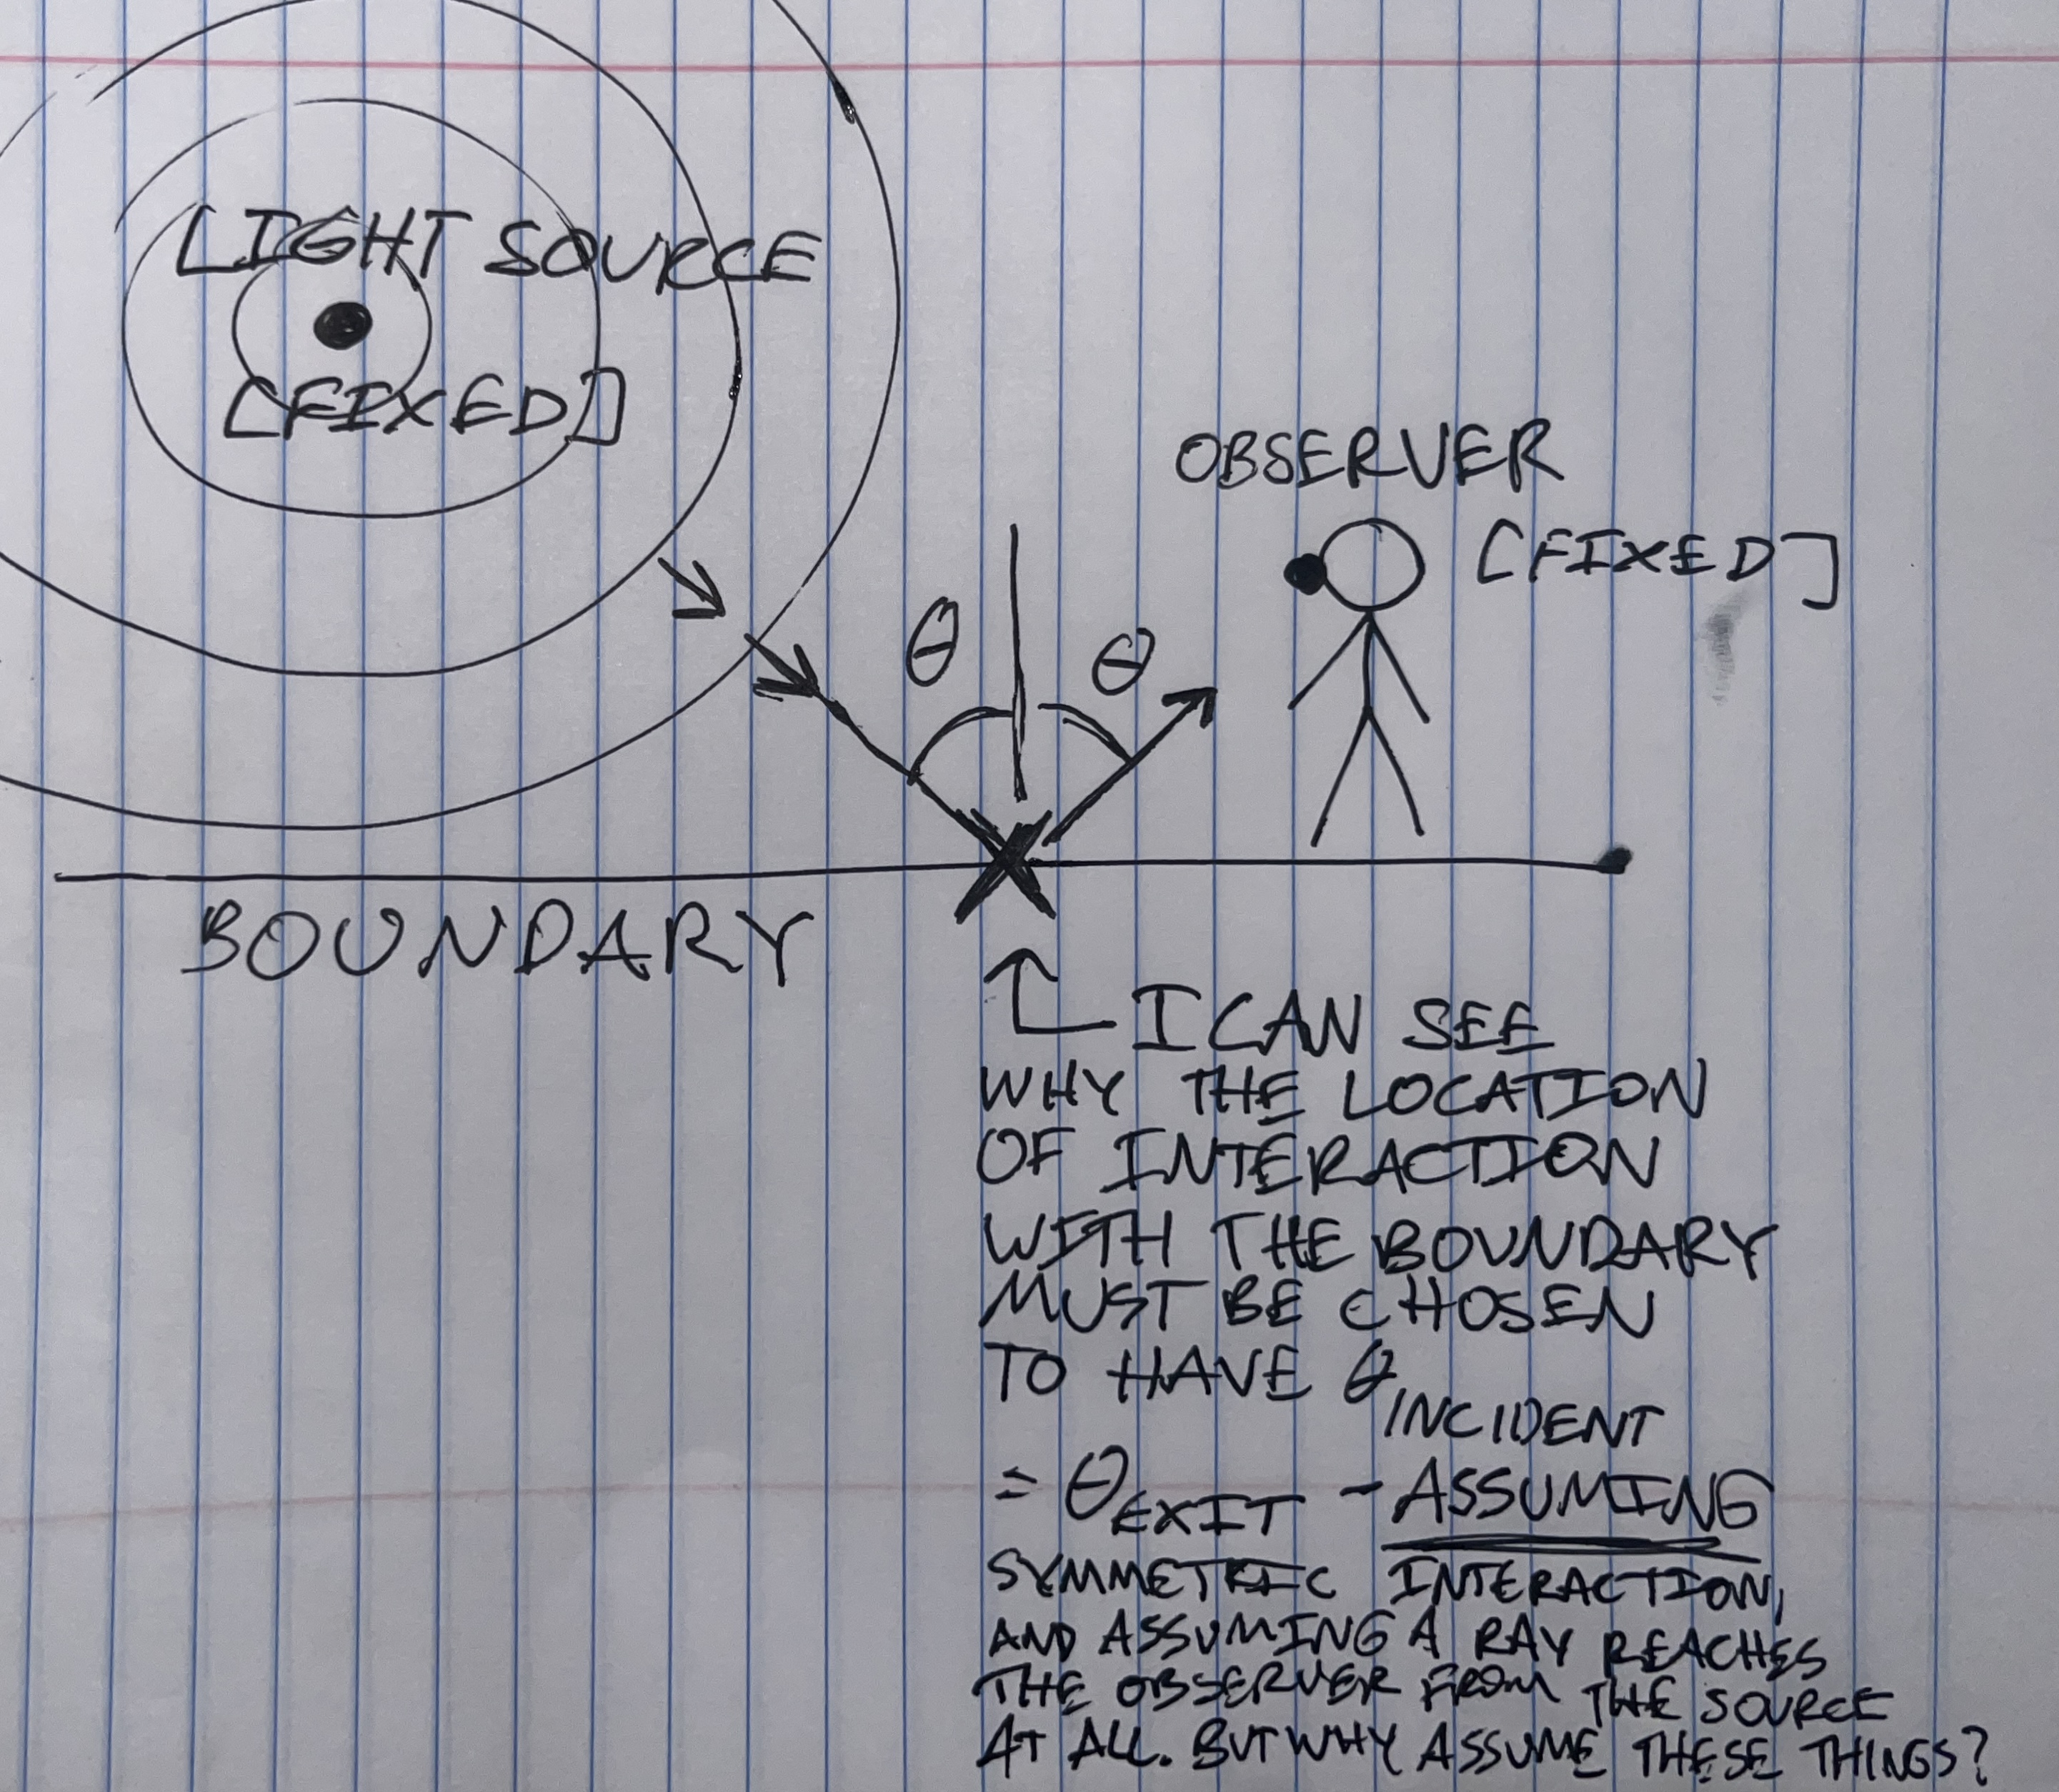 LIGHT SOURCE
[FIXED]
OBSERVER
[FIXED]
θ
θ
BOUNDARY
I CAN SEE
WHY THE LOCATION
OF INTERACTION
WITH THE BOUNDARY
MUST BE CHOSEN
TO HAVE θ INCIDENT
= θ EXIT - ASSUMING
SYMMETRIC INTERACTION,
AND ASSUMING A RAY REACHES
THE OBSERVER FROM THE SOURCE
AT ALL. BUT WHY ASSUME THESE THINGS?